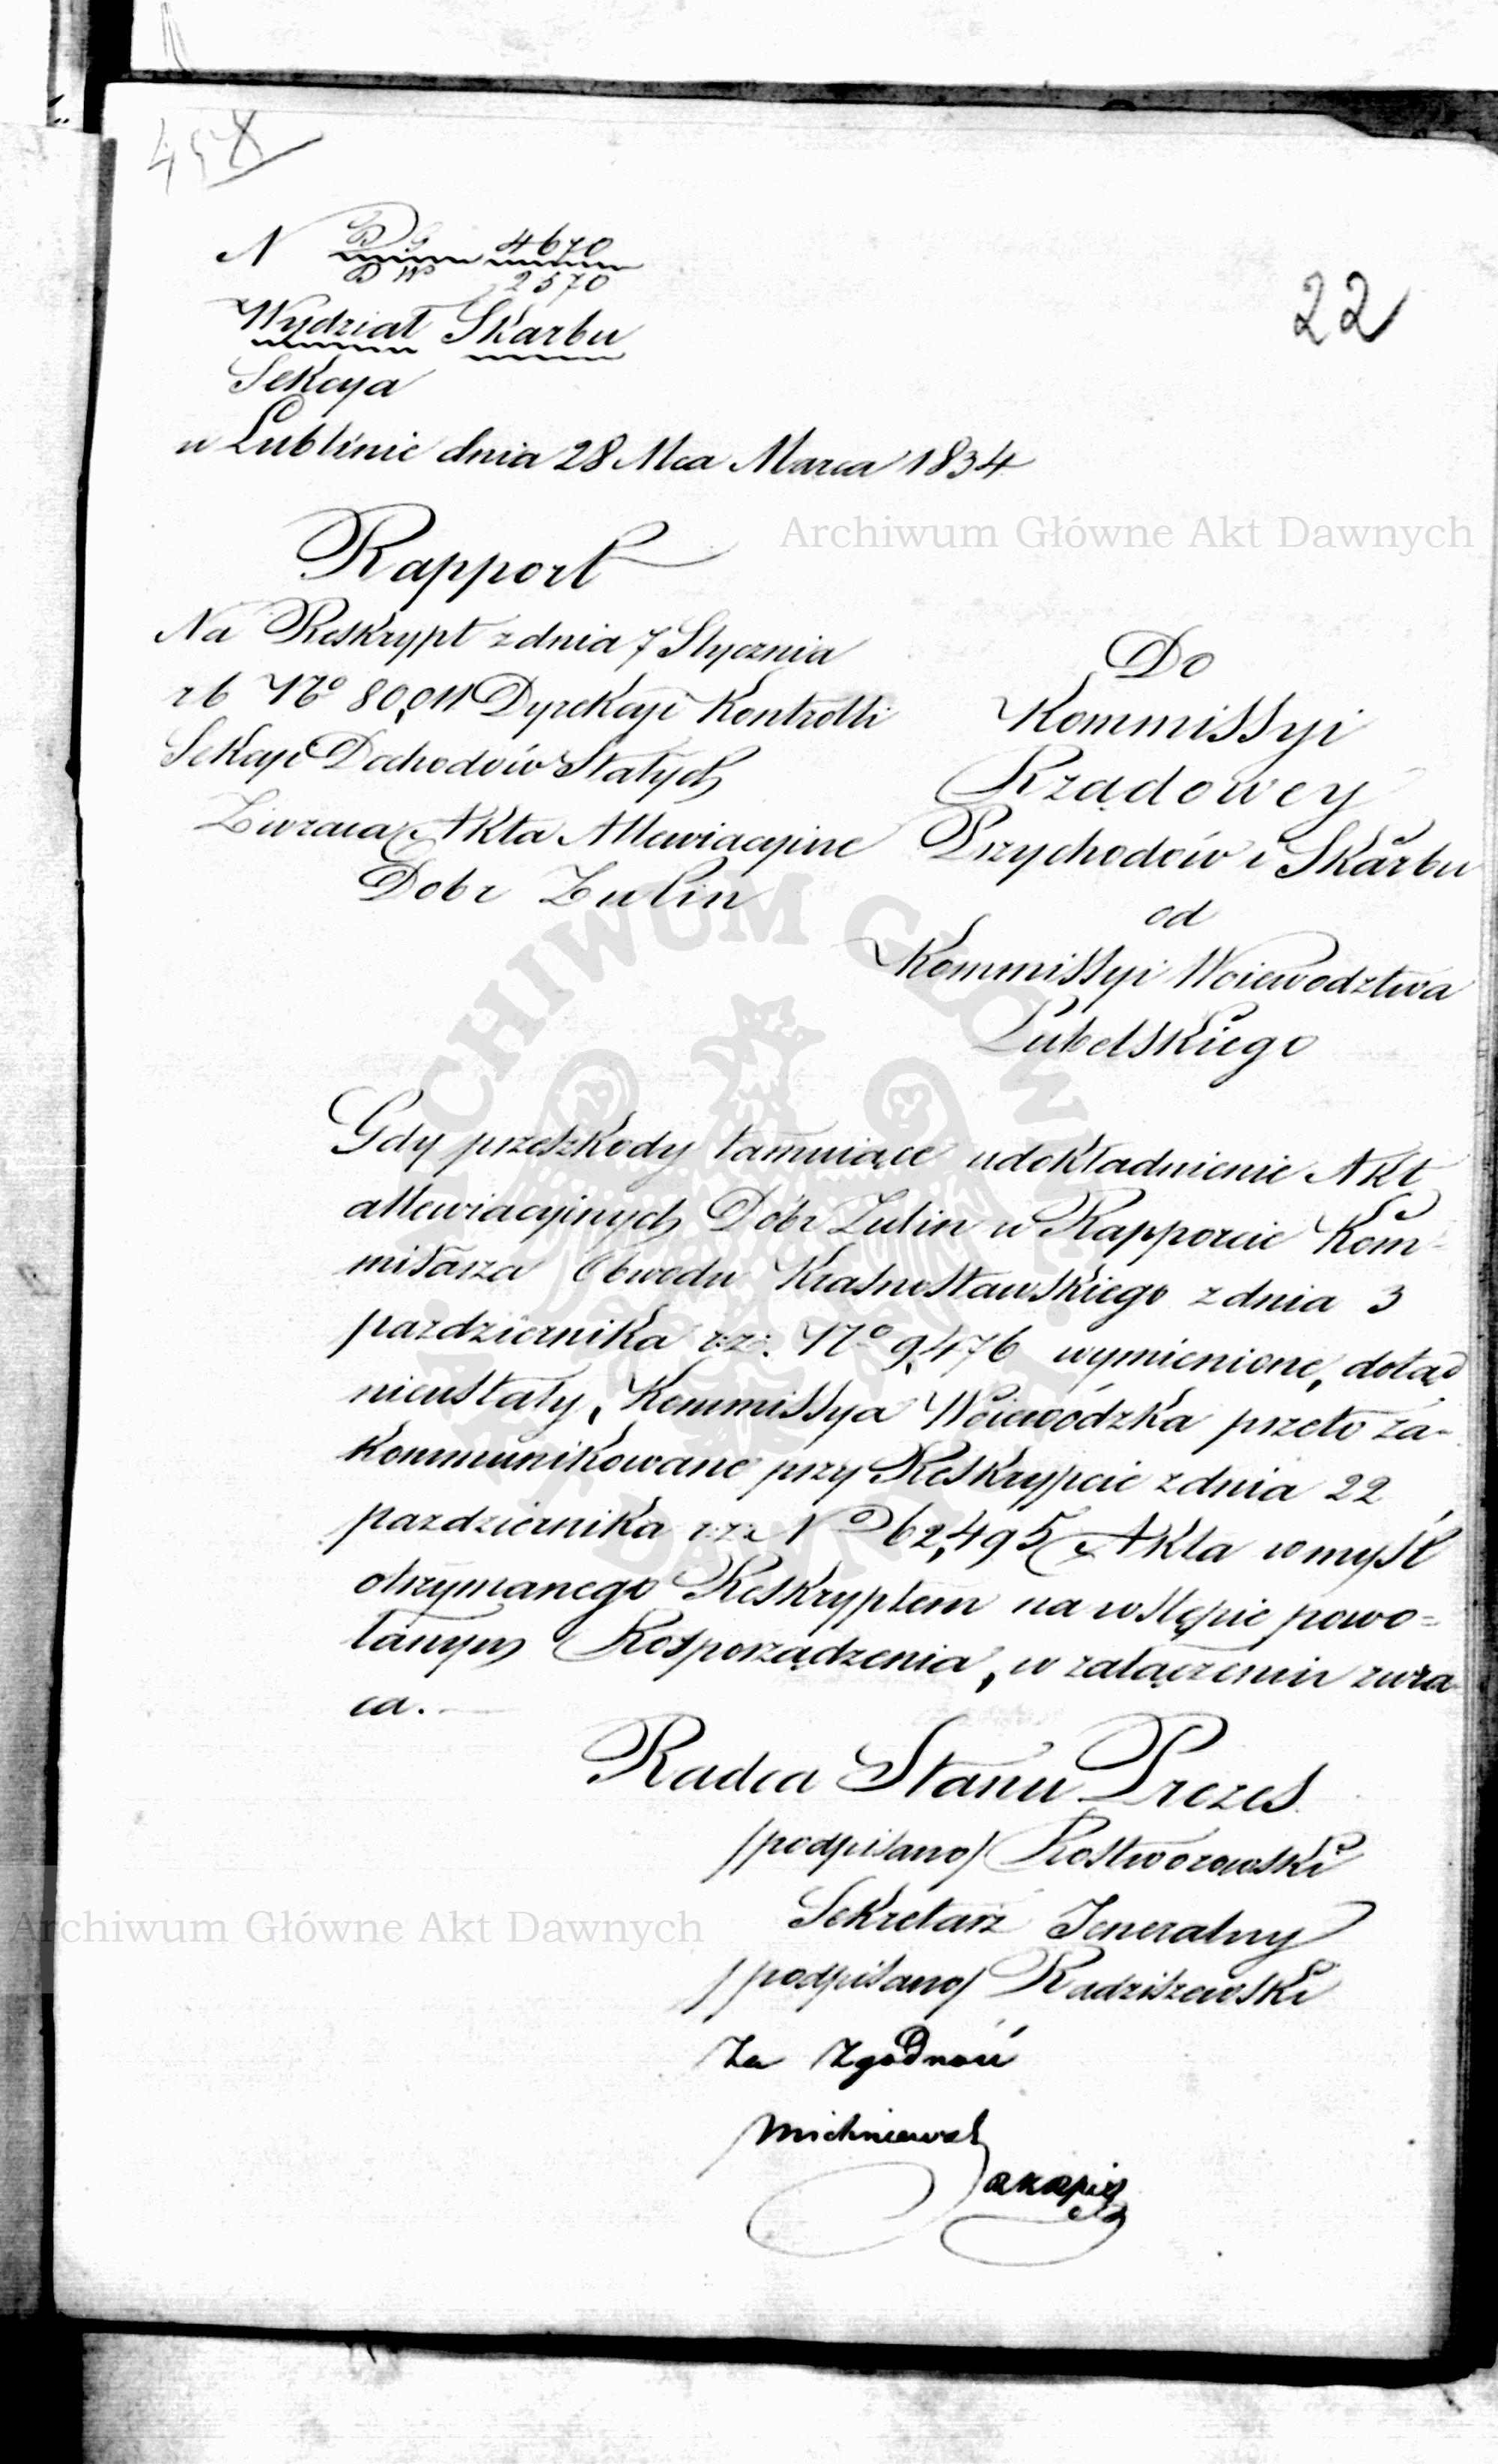 458
22
N D G 4670
D W 2570
Wydział Skarbu
Sekcya
w Lublinie dnia 28 Mca Marca 1834
Rapport
Na Reskrypt z dnia 7 Stycznia
r b No 80,011 Dyrekcyi Kontrolli
Sekcyi Dochodów Stałych
Zwraca Akta Allewiacyine
Dobr Zulin
Do
Kommissyi
Rządowey
Przychodów i Skarbu
od
Kommissyi Woiewodztwa
Lubelskiego
Gdy przeszkody tamuiące udokładnienie Akt
allewiacyinych Dóbr Zulin w Rapporcie Kom-
misarza Obwodu Krasnostawskiego z dnia 3
pazdziernika r: z: No 9,476 wymienione, dotąd
nieustały, Kommissya Woiewódzka przeto za-
kommunikowane przy Reskrypcie z dnia 22
pazdziernika r: z: No 62,495 Akta w myśl
otrzymanego Reskryptem na wstępie powo=
łanym Rosporządzenia, w załączeniu zwra-
ca.
Radca Stanu Prezes
/podpisano/ Rostworowski
Sekretarz Jeneralny
/podpisano/ Radziszewski
Za Zgodność
Archiwum Główne Akt Dawnych
Archiwum Główne Akt Dawnych
ARCHIWUM GŁÓWNE AKT DAWNYCH